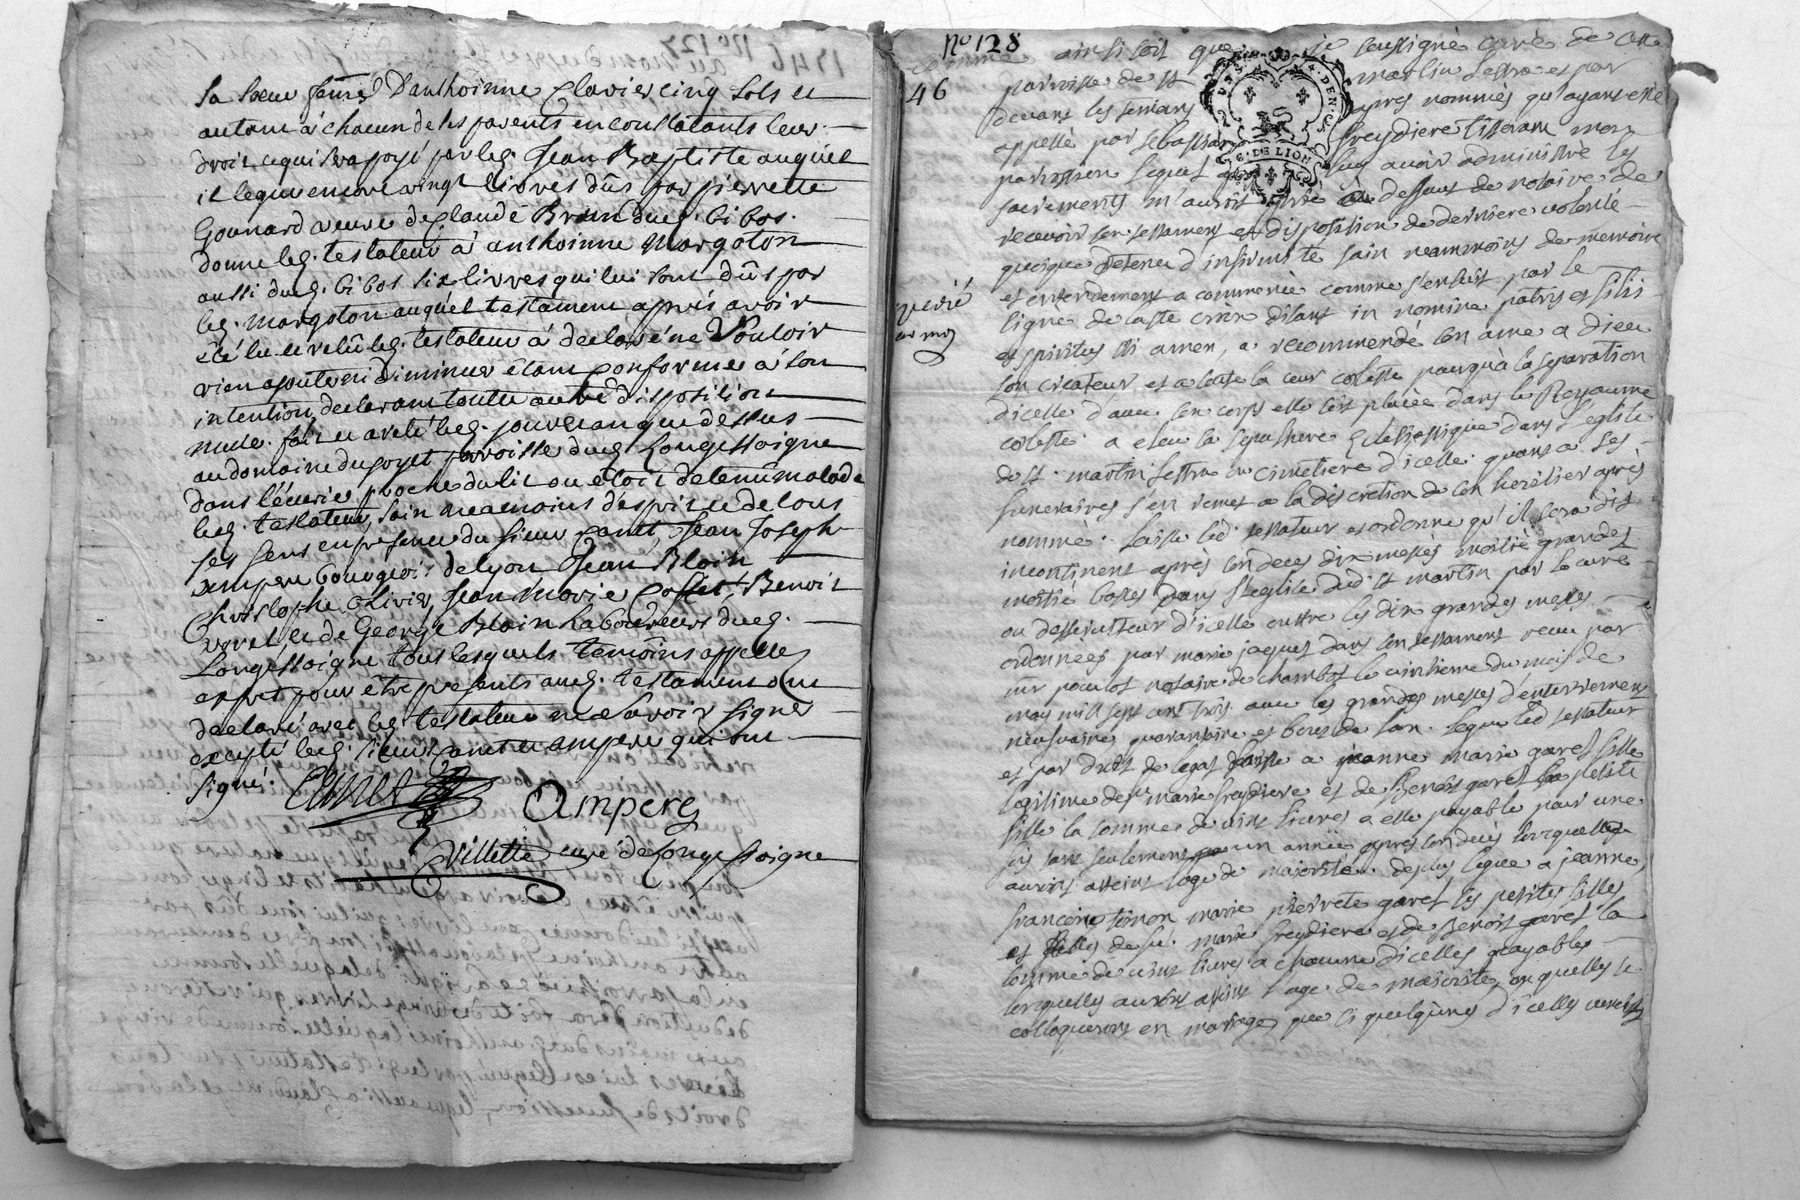 sa soeur femme d'anthoinne Clavier cinq sols et
autant à chacun de ses parents en constatants leur
droit ce qui sera payé par led. Jean Baptiste auquel
il legue encore vingt livres dûs par pierrette
Gonnard veuve de Claude Brun dud. bibos.
donne led. testateur à anthoinne Margoton
aussi dud. bibos six livres qui lui sont dûs par
led. Margoton auquel testament après avoir
été lu et relû led. testateur à declaré ne Vouloir
rien ajouter ni diminuer êtant conforme à son
intention, declarant toutte autre disposition
nulle. fait et arrêté led. jour et an que dessus
au domaine du poyet parroisse dud. Longessaigne
dans l'écurie proche du lit ou étoit detenû malade
led. testateur, sain neamoins d'esprit et de tous
ses sens en presence du sieur Canet, Jean Joseph
Ampere bourgeois de lyon Jean Bloin
Christophe Olivier, Jean Marie Collet, Benoit
et de George Bloin Laboureurs dud.
Longessaigne tous lesquels temoins appellés
exprès pour être presents aud. testament ont
declaré avec led. testateur ne savoir signer
excepté led. sieur Canet et ampere qui ont
signé. Canet
Ampere
Villette curé de Longessaigne
No 128
46
comme ainsi soit que je soussigné curé de cette
parroisse de st martin Lestra et par
devant les temoins apres nommés qu'ayant esté
appellé par sebastian freydiere tisseran mon
parroissien lequel après lui avoir administré les
sacrements m'auroit prié au deffaut de notaire de
recevoir son testament et disposition de derniere volonté
quoique detenu d'infirmité sain neanmoins de memoire
et entendement a commencé comme s'ensuit par le
signe de la ste croix disant in nomine patris et filii
et spiritus sti amen, a recommendé son ame a dieu
son createur, et a toute la cour celeste pour qu'à la separation
d'icelle d'avec son corps elle soit placée dans le Royaume
celeste. a eleu sa sepulture Eclesiastique dans l'eglise
de st. martin Lestra ou cimetiere d'icelle. quant à ses
funeraires s'en remet a la discretion de son heritier après
nommé. laisse led. testateur et ordonne qu'il sera dit
incontinent après son deces dix messes moitié grandes
moitié basses dans l'eglise dud. st martin par le curé
ou desserviteur d'icelle outre les dix grandes messes
ordonnees par marie jaquet dans son testament receu par
mr notaire de chambost le cinquieme du mois de
may mill sept cent trois. avec les grandes messes d'enterrement
neufvaine quarantaine et bout de l'an. legue led testateur
et par droit de legat laisse a jeanne marie garel fille
legitime de fe marie freydiere et de Benoit garel sa petite
fille la somme de vint livres a elle payable pour une
fois tant seulement un année après son deces lorsquelle
auroit atteint l'age de majorité. de plus legue a jeanne,
francoise simon marie pierrete garel ses petites filles
et filles de fe. marie freydiere et de Benoit garel la
somme de vint livres a chacune d'icelles payables
lorsquelles auront atteint l'age de majorité, ou quelles se
colloqueront en mariage, que si quelqu'unes d'icelles venoit
verifié
G. DE LION